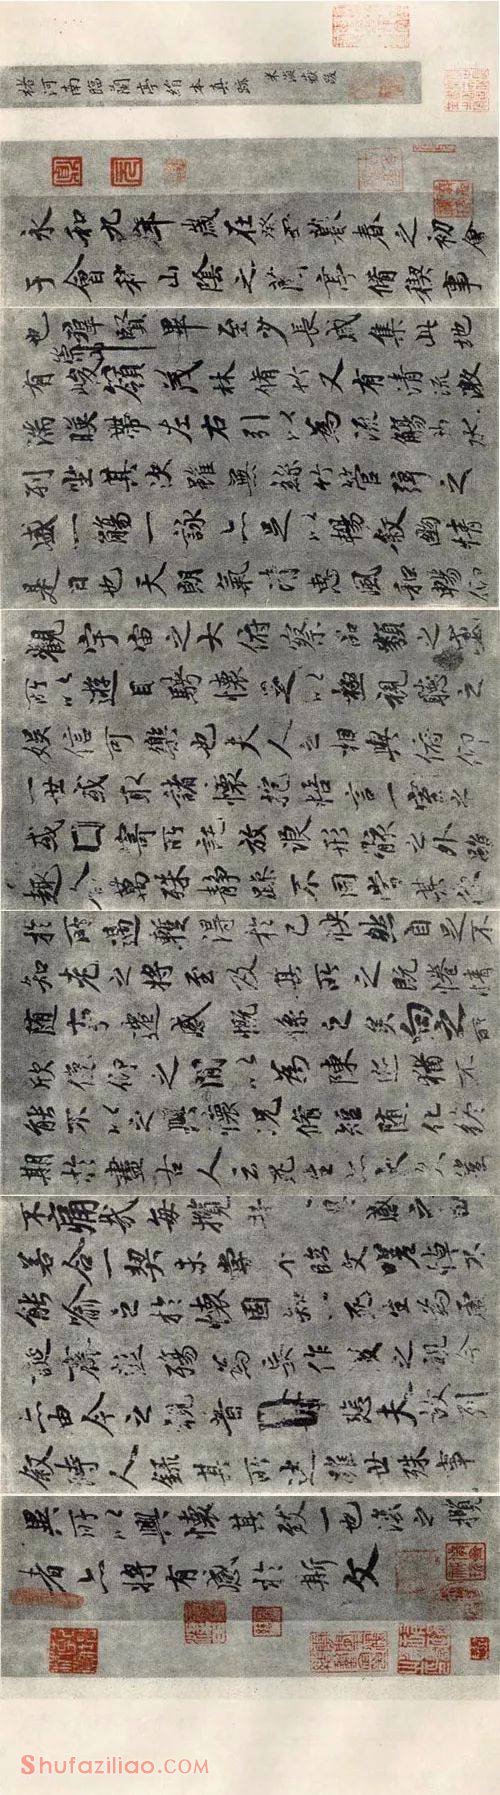 褚河南臨蘭亭絹本真跡 米海嶽跋
永和九年歲在癸丑暮春之初會
于會稽山陰之蘭亭脩稧事
也群賢畢至少長咸集此地
有崇山峻領茂林脩竹又有清流激
湍暎帶左右引以為流觴曲水
列坐其次雖無絲竹管弦之
盛一觴一詠亦足以暢敘幽情
是日也天朗氣清惠風和暢仰
觀宇宙之大俯察品類之盛
所以遊目騁懷足以極視聽之
娛信可樂也夫人之相與俯仰
一世或取諸懷抱悟言一室之
或因寄所託放浪形骸之外雖
趣舍萬殊靜躁不同當其欣
於所遇暫得於己怏然自足不
知老之將至及其所之既惓情
隨事遷感慨係之矣向之所
欣俛仰之閒以為陳迹猶不
能不以之興懷況脩短隨化終
期於盡古人云死生亦大矣豈
不痛哉每攬昔興感之由
若合一契未嘗不臨文嗟悼不
能喻之於懷固知一死生為虛
誕齊彭殤為妄作後之視今
亦由今之視昔悲夫故列
敘時人錄其所述雖世殊事
異所以興懷其致一也後之攬
者亦將有感於斯文
Shufaziliao.com